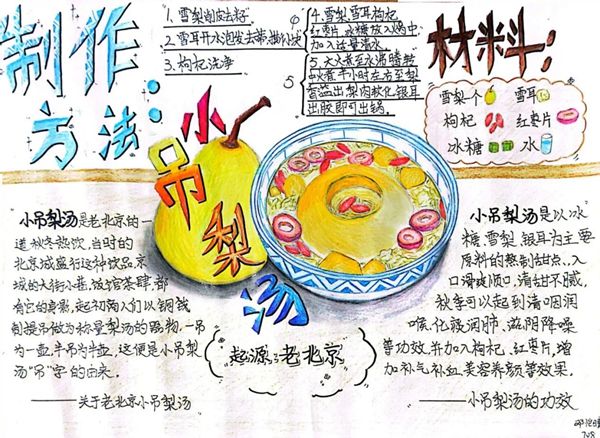 制作
方法：
1. 雪梨削皮去籽
2. 雪耳开水泡发去蒂
3. 枸杞洗净
4. 雪梨、雪耳、枸杞
红枣片、冰糖放入锅中
加入适量清水。
5. 大火煮至水沸腾转
中火煮半小时左右至梨
出梨肉软化、银耳
出胶即可出锅。
材料：
雪梨一个
雪耳
枸杞
红枣片
冰糖
水
小吊梨汤
小吊梨汤是老北京的一
道秋冬热饮，当时的
北京城盛行这种饮品，京
城的大街小巷、饭馆茶肆，都
有它的身影，起初商人们以铜钱
制提子做为称量梨汤的器物，一吊
为一壶，半吊为半壶，这便是小吊梨
汤“吊”字的由来。
——关于老北京小吊梨汤
起源：老北京
小吊梨汤是以冰
糖、雪梨、银耳为主要
原料的熬制甜点、入
口滑爽顺口，清甜不腻，
秋季可以起到清咽润
喉、化痰润肺、滋阴降噪
等功效，并加入枸杞、红枣片，增
加补气补血、美容养颜等效果。
——小吊梨汤的功效